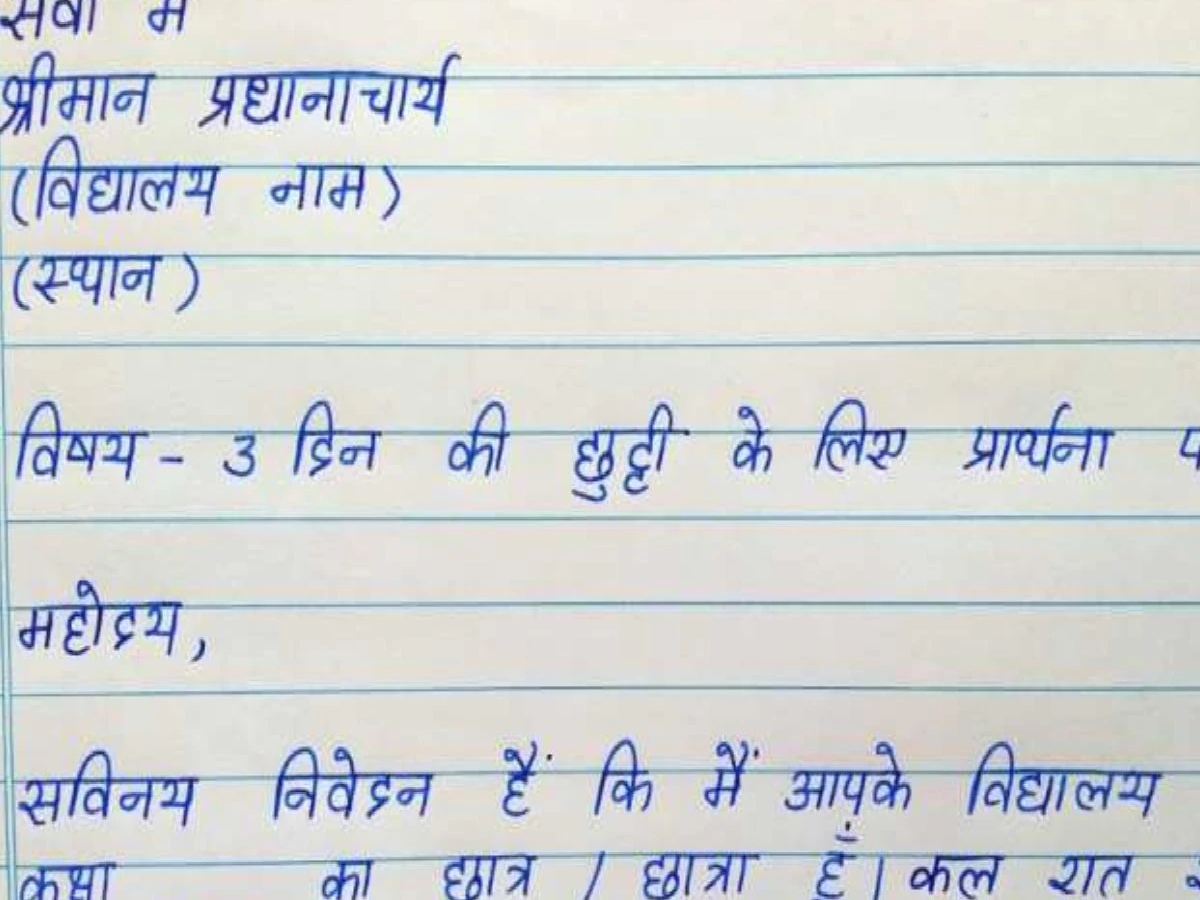 सेवा में
श्रीमान प्रधानाचार्य
(विद्यालय नाम)
(स्थान)
विषय - 3 दिन की छुट्टी के लिए प्रार्थना
महोदय,
सविनय निवेदन हैं कि मैं आपके विद्यालय
कक्षा का छात्र / छात्रा हूँ। कल रात